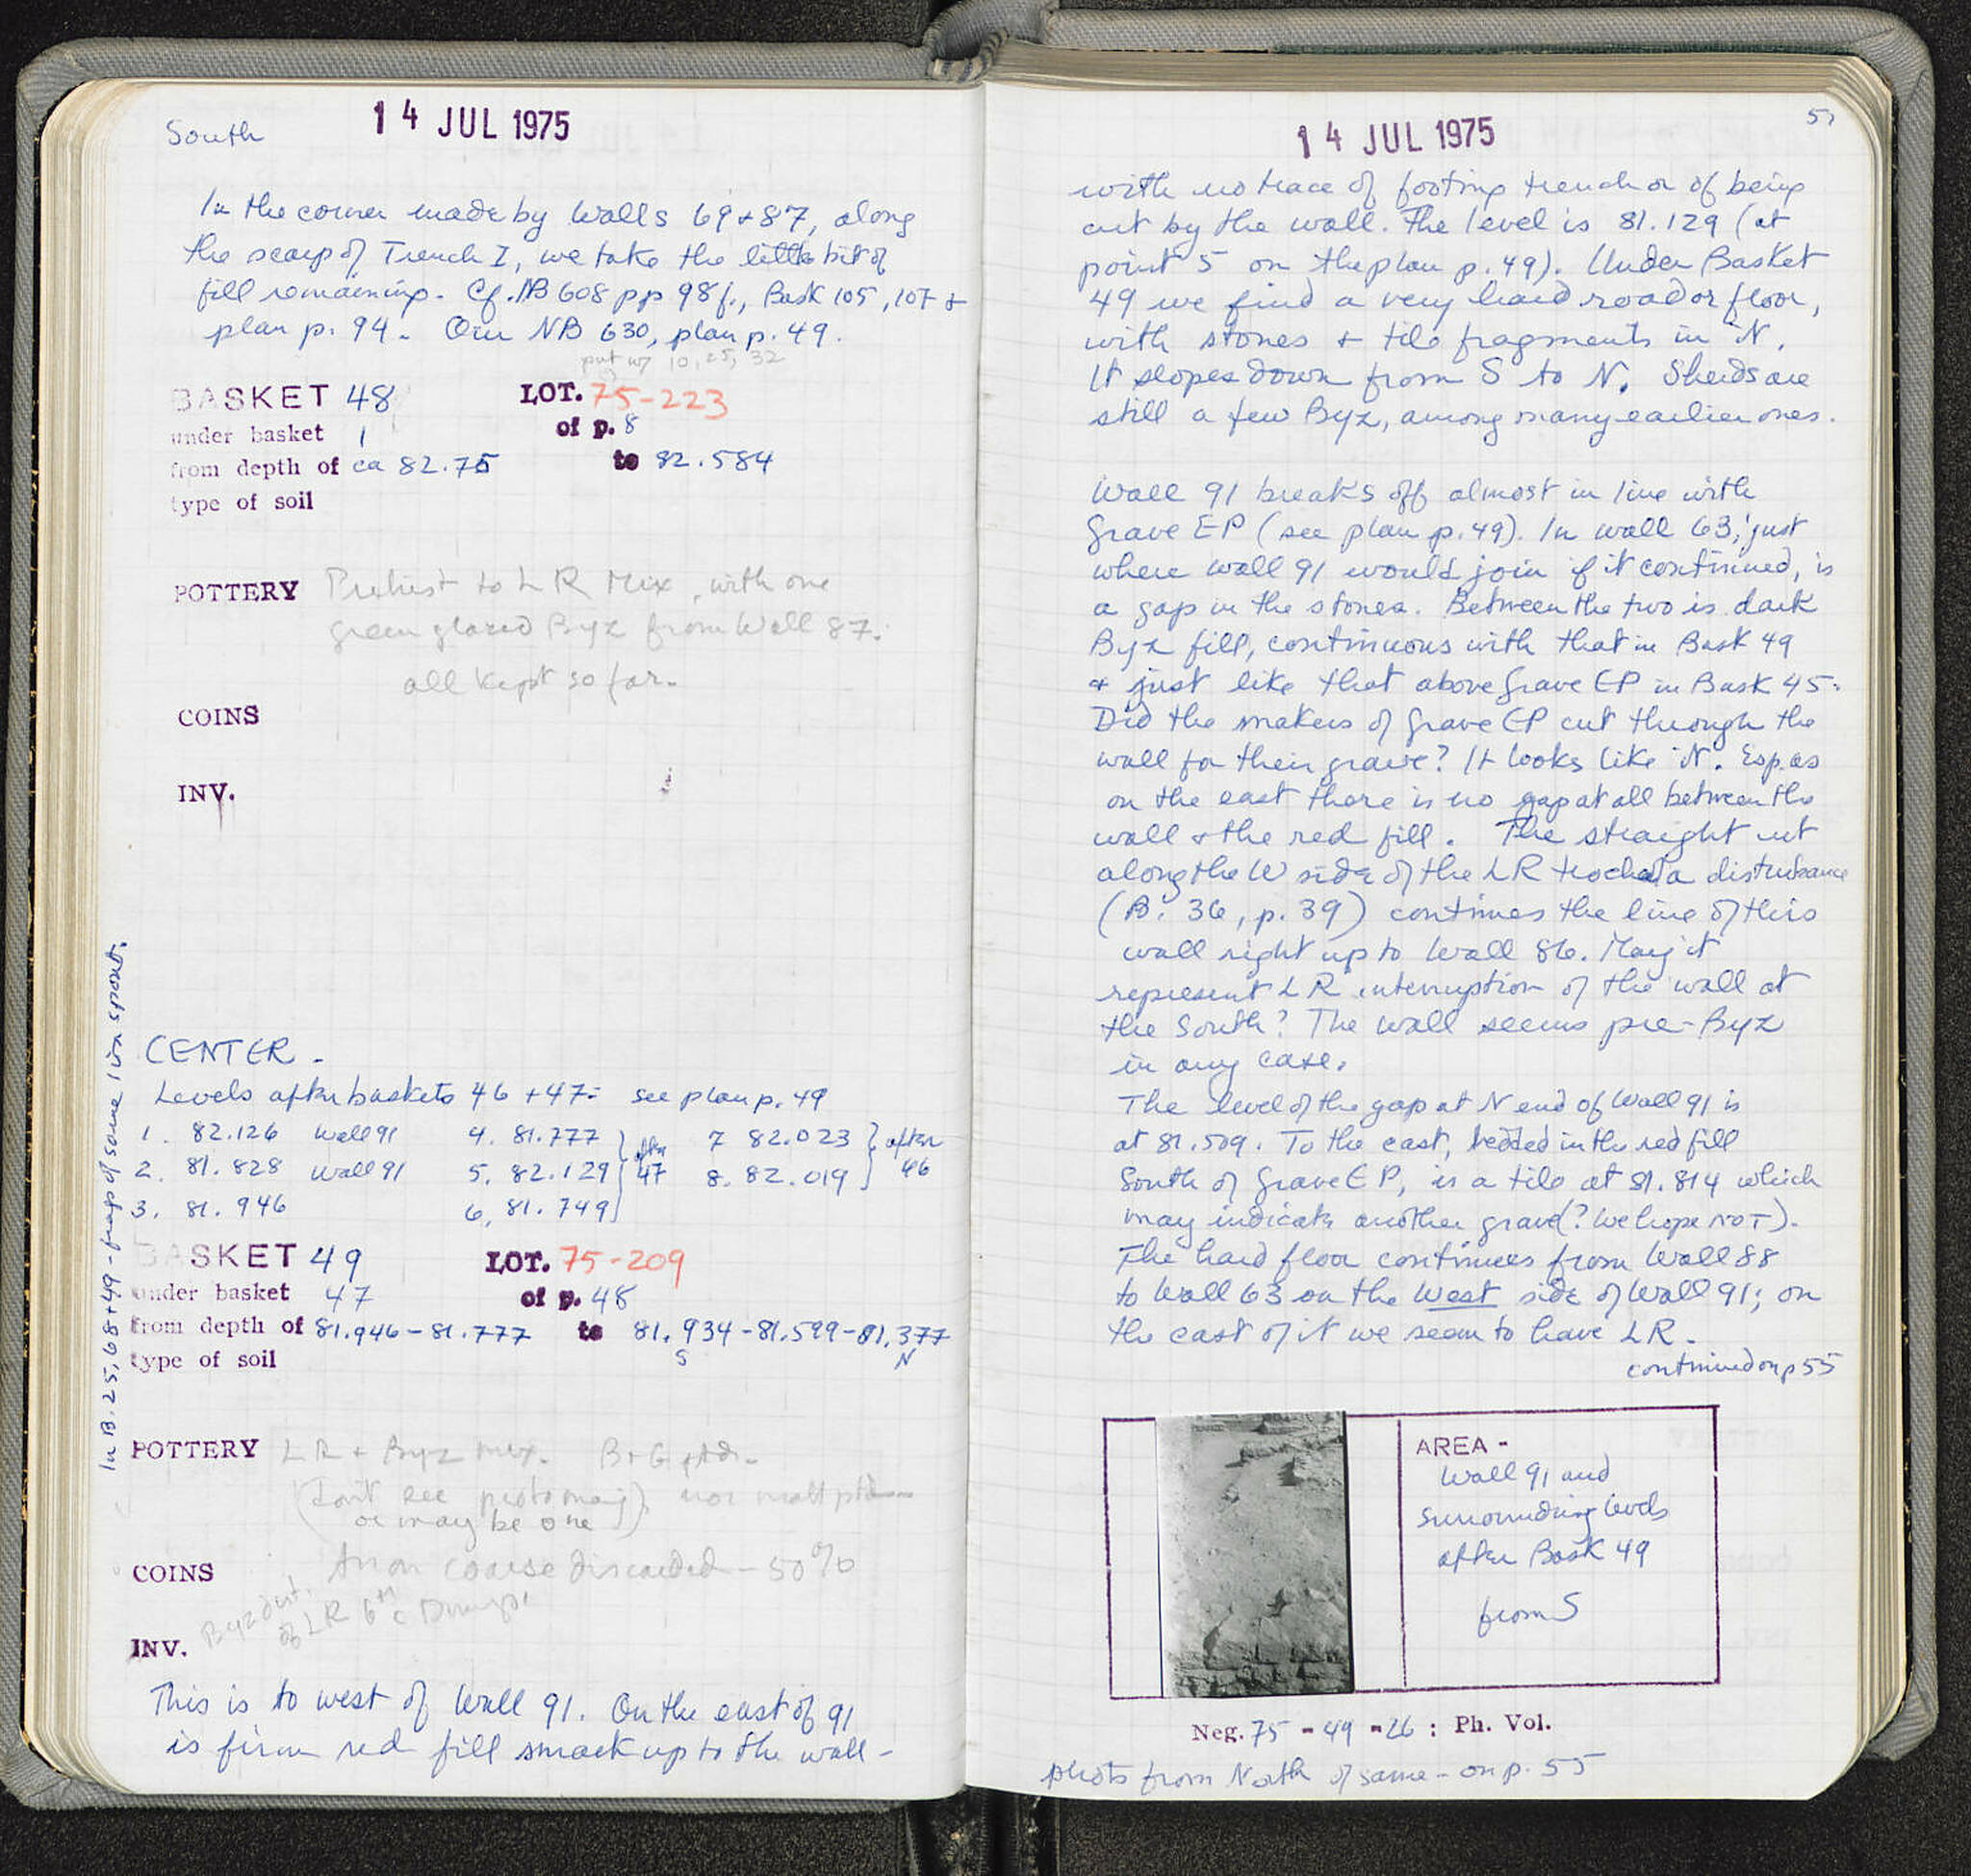 South
14 JUL 1975
In the corner made by Walls 69 + 87, along
the scarp of Trench I, we take the little bit of
fill remaining. Cf. NB 608 pp 98f., Bask 105, 107 +
plan p. 94. Our NB 630, plan p. 49.
put w/ 10, 25, 32
BASKET 48 LOT. 75-223
under basket 1 of p. 8
from depth of ca 82.75 to 82.584
type of soil
POTTERY Prehist to LR Mix, with one
green glazed Byz from Wall 87.
all kept so far.
COINS
INV.
CENTER -
Levels after baskets 46 + 47: see plan p. 49
1. 82.126 Wall 91 4. 81.777 7 82.023 after
2. 81.828 Wall 91 5. 82.129 after 47 8. 82.019 46
3. 81.946 6. 81.749
BASKET 49 LOT. 75-209
under basket 47 of p. 48
from depth of 81.946-81.777 to 81.934-81.599-81.377
S N
type of soil
POTTERY LR + Byz mix. B+G
(don't see protomaj),
or may be one
COINS coarse discarded - 50%
Byz dist.
of LR 6th c Dump
INV.
This is to west of Wall 91. On the east of 91
is firm red fill smack up to the wall -
In B. 25, 68+49 - frags of same lion spout.
14 JUL 1975
51
with no trace of footing trench or of being
cut by the wall. The level is 81.129 (at
point 5 on the plan p. 49). Under Basket
49 we find a very hard road or floor,
with stones + tile fragments in N.
It slopes down from S to N. Sherds are
still a few Byz, among many earlier ones.
Wall 91 breaks off almost in line with
Grave EP (see plan p. 49). In wall 63, just
where wall 91 would join if it continued, is
a gap in the stones. Between the two is dark
Byz fill, continuous with that in Bask 49
+ just like that above Grave EP in Bask 45.
Did the makers of Grave EP cut through the
wall for their grave? It looks like it. Esp. as
on the east there is no gap at all between the
wall + the red fill. The straight cut
along the W side of the LR disturbance
(B. 36, p. 39) continues the line of this
wall right up to Wall 86. May it
represent LR interruption of the wall at
the South? The wall seems pre-Byz
in any case.
The level of the gap at N end of Wall 91 is
at 81.509. To the east, bedded in the red fill
South of Grave EP, is a tile at 81.814 which
may indicate another grave (? We hope NOT).
The hard floor continues from Wall 88
to Wall 63 on the West side of Wall 91; on
the east of it we seem to have LR.
continued on p 55
AREA -
Wall 91 and
surrounding levels
after Bask 49
from S
Neg. 75 - 49 - 26 : Ph. Vol.
photo from North of same - on p. 55